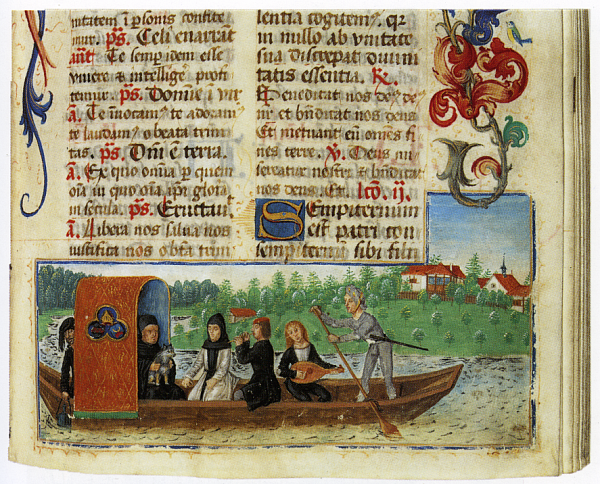 nitatem ī p̱sonis confite
mur. ps. Celi enarrāt
ant̄ Te semp̱ idem esse
vivere & intellige profi
temur. ps. Domīe ī vir
a. Te invocamꝰ te adoramꝰ
te laudamꝰ o beata trini
tas. ps. Dn̄i ē terra.
a. Ex quo om̄ia p̱ quem
oīa in quo oīa ip̄i gloria
in secula. ps. Eructauit
a. Libera nos salua nos
iustifica nos o bt̄a trini
lentia cogitemꝰ. qꝛ
in nullo ab vnitate
sua discrepat diuini
tatis essentia. R.
Benedicat nos deꝰ deꝰ
nr̄ et bn̄dicat nos deus
Et metuant eum om̄es fi
nes terre. V. Deus mi
sereatur nostri & bn̄dicat
nos deus. Et. lc̄o. ij.
SEmpiternum
est patri cum
sempiterno sibi filii